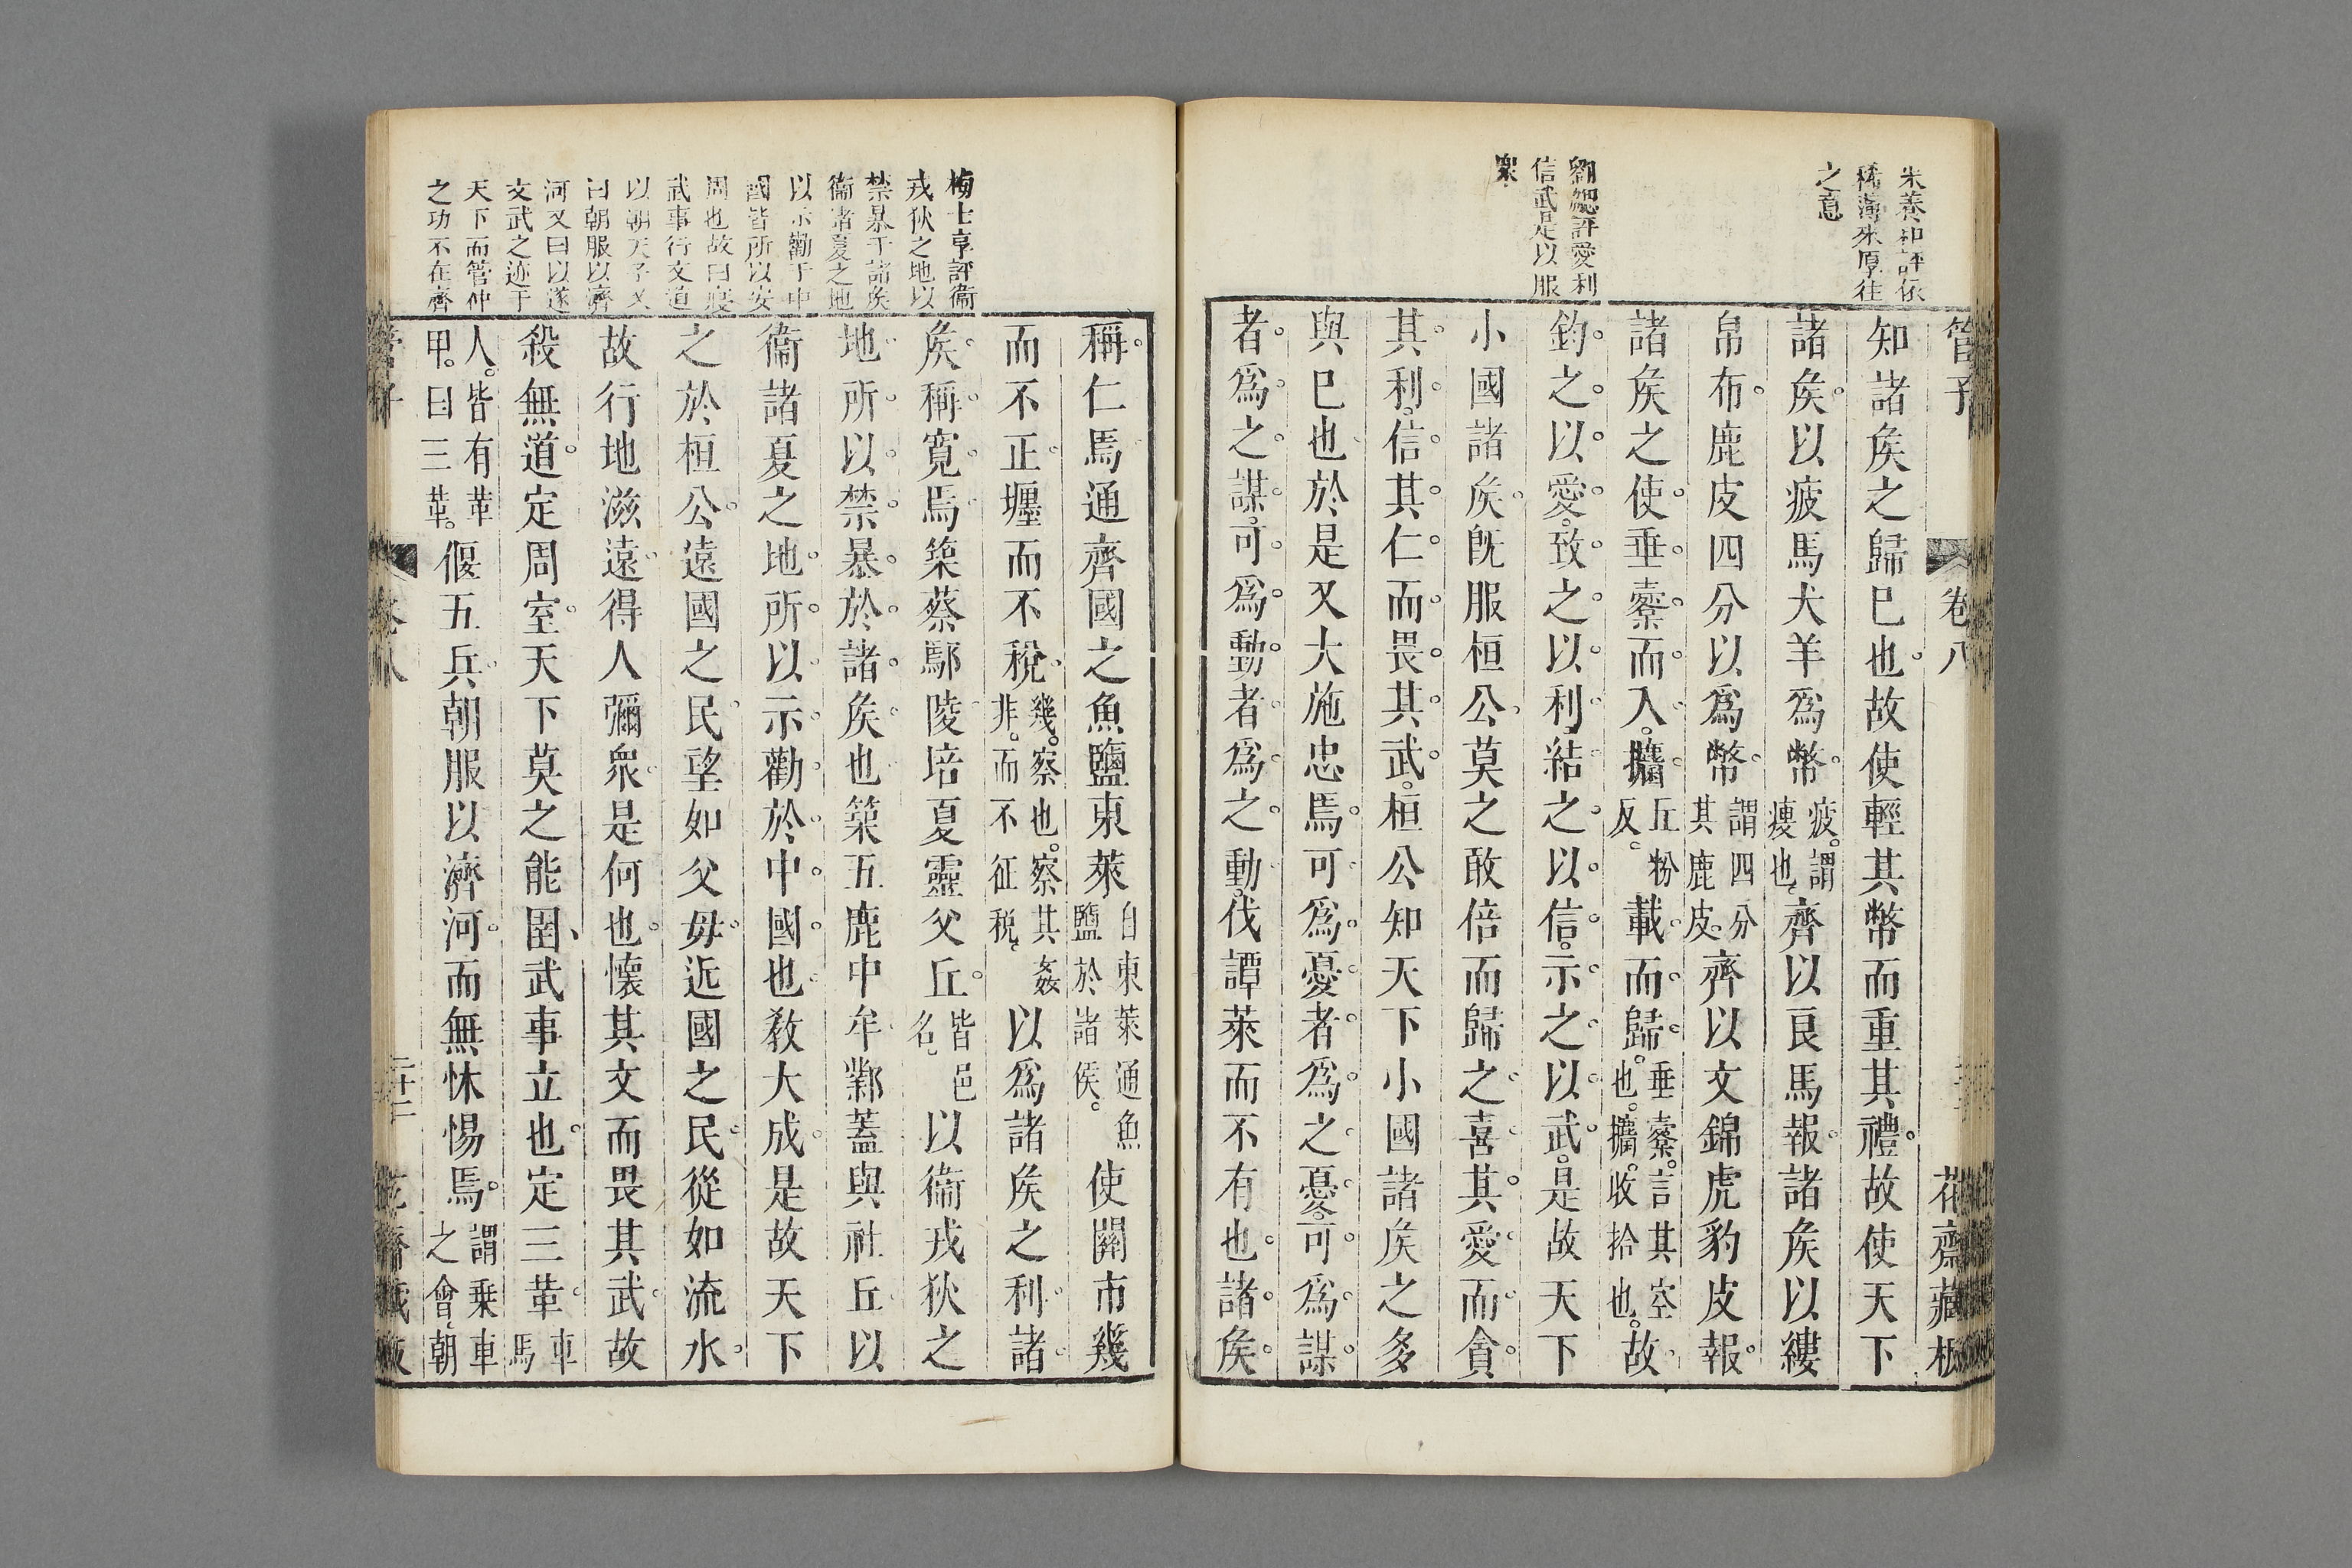 朱養和評依
稀薄來厚往
之意
劉總評愛利
信武是以服
衆
管子 卷八 花齋藏板
知諸矦之歸巳也故使輕其幣而重其禮故使天下
諸矦以疲馬犬羊爲幣疲謂瘦也齊以良馬報諸矦以縷
帛布鹿皮四分以爲幣謂四分其鹿皮齊以文錦虎豹皮報
諸矦之使垂櫜而入攟丘粉反載而歸垂櫜言其空也攟收拾也故
鈞之以愛致之以利結之以信示之以武是故天下
小國諸矦旣服桓公莫之敢倍而歸之喜其愛而貪
其利信其仁而畏其武桓公知天下小國諸矦之多
與巳也於是又大施忠焉可爲憂者爲之憂可爲謀
者爲之謀可爲動者爲之動伐譚萊而不有也諸矦
梅士享評衞
戎狄之地以
禁暴于諸矦
衞諸夏之地
以示勸于中
國皆所以安
周也故曰寢
武事行文道
以朝天子又
曰朝服以濟
河又曰以遂
文武之迹于
天下而管仲
之功不在齊
稱仁焉通齊國之魚鹽東萊自東萊通魚鹽於諸侯使關市幾
而不正壥而不稅幾察也察其姦非而不征稅以爲諸矦之利諸
矦稱寬焉築蔡鄢陵培夏靈父丘皆邑名以衞戎狄之
地所以禁暴於諸矦也築五鹿中牟鄴蓋與社丘以
衞諸夏之地所以示勸於中國也敎大成是故天下
之於桓公遠國之民望如父母近國之民從如流水
故行地滋遠得人彌衆是何也懷其文而畏其武故
殺無道定周室天下莫之能圉武事立也定三革車馬
人皆有革甲曰三革偃五兵朝服以濟河而無怵惕焉謂乗車之會朝
管子 卷八 二十二 花齋藏板